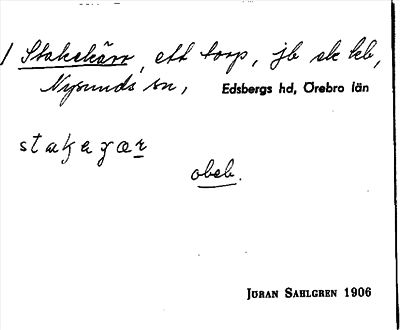 1 Stakekärr, ett torp, jb sk kb,
Nysunds sn, Edsbergs hd, Örebro län
obeb.
JÖRAN SAHLGREN 1906